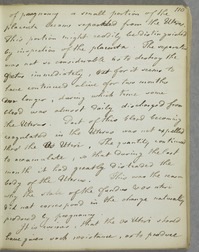 of pregnancy a small portion of the
placenta became separated from the Uterus.
This portion might readily be distinguished
by inspection of the placenta. The separation
was not so considerable as to destroy the
Fœtus immediately, but for it seems to
have continued alive for two months
longer, during which time some
blood was almost daily discharged from
the Uterus. Part of this blood becoming
coagulated in the Uterus was not expelled
thro' the Os Uteri, the quantity continued
to accumulate, so that during the last
month it had greatly distended the
body of the Uterus. This was the reason
why the state of the
did not correspond in the change naturally
produced by pregnancy.
It is curious, that the Os Uteri should
have given such resistance, as to produce